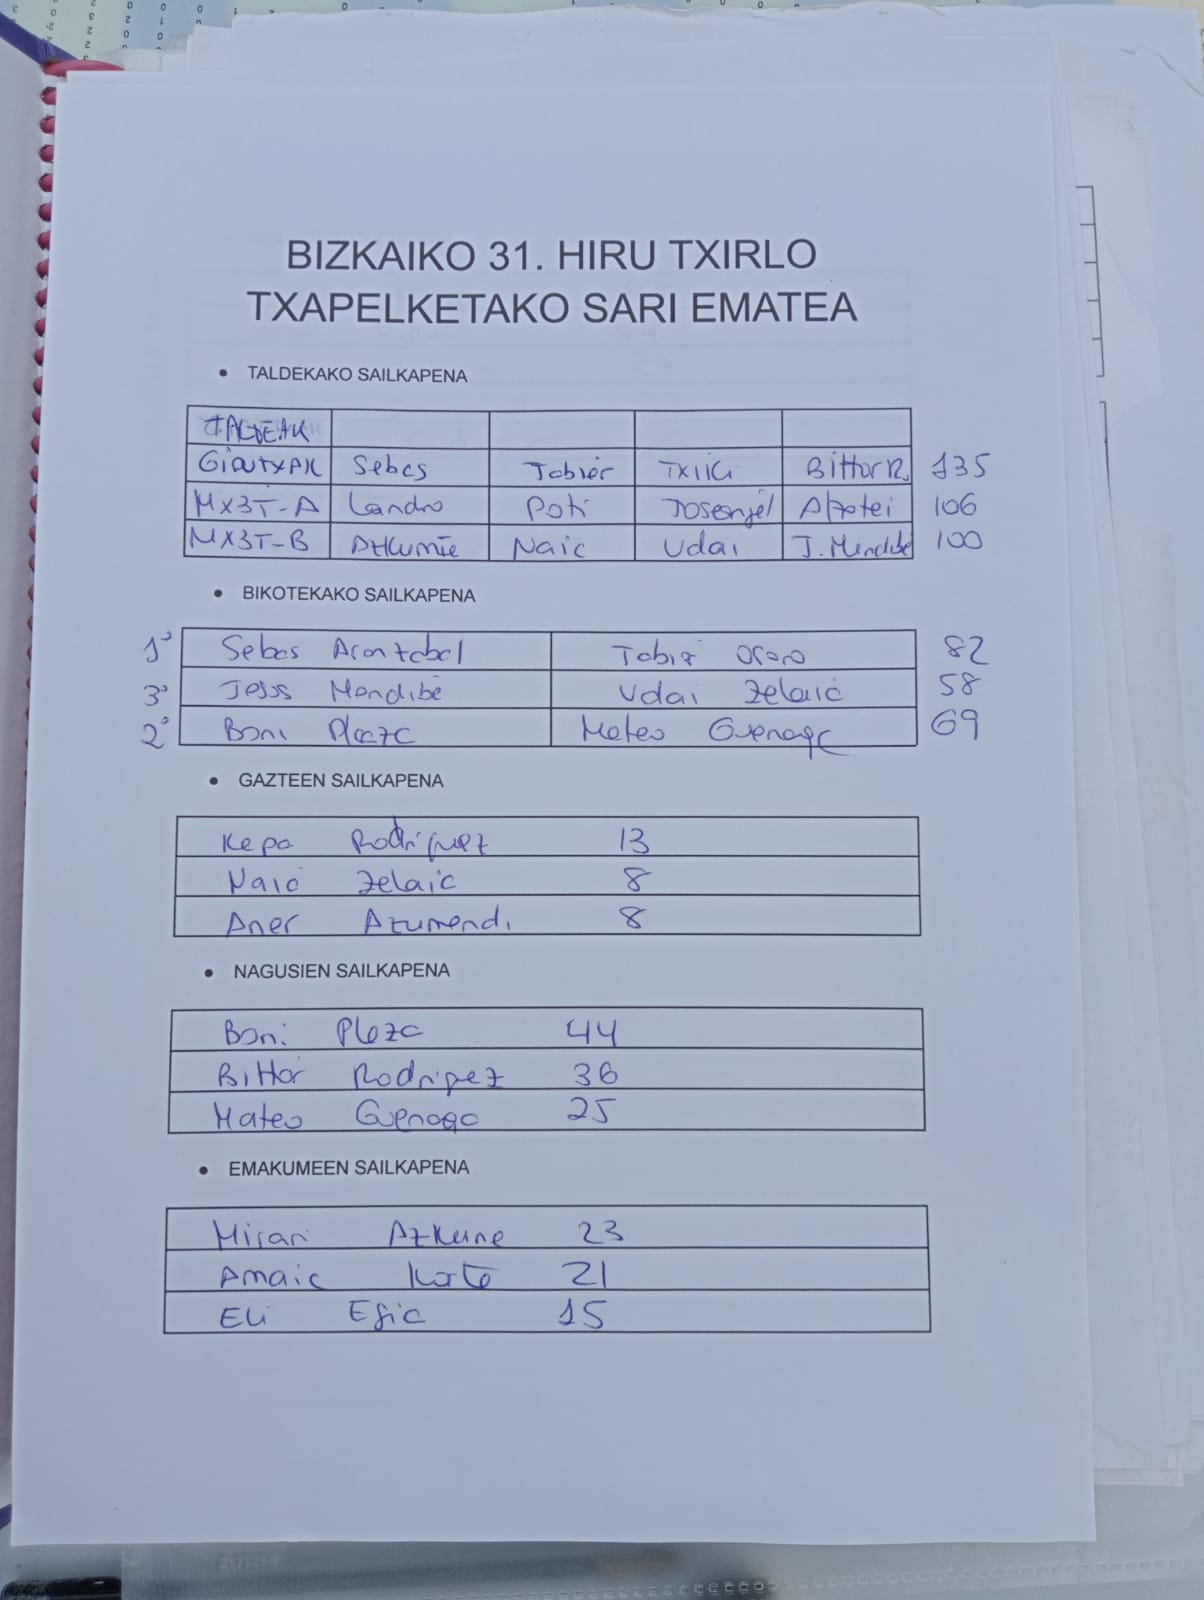 BIZKAIKO 31. HIRU TXIRLO
TXAPELKETAKO SARI EMATEA
• TALDEKAKO SAILKAPENA
TALDEAK
GiPUTXAK Sebas Jabier TXIKI Bittor R. 135
MX3T-A Landro Poti Josenjel 106
MX3T-B Naia Udai J. Mendibe 100
• BIKOTEKAKO SAILKAPENA
1º Sebas Arantzabal Jabier 82
3º Jesus Mendibe Udai Zelaia 58
2º Boni Plaza Mateo Guenaga 69
• GAZTEEN SAILKAPENA
Kepa Rodriguez 13
Naia Zelaia 8
Aner Azumendi 8
• NAGUSIEN SAILKAPENA
Boni Plaza 44
Bittor Rodriguez 36
Mateo Guenaga 25
• EMAKUMEEN SAILKAPENA
Miran Azkune 23
Amaia 21
Eli Egia 15